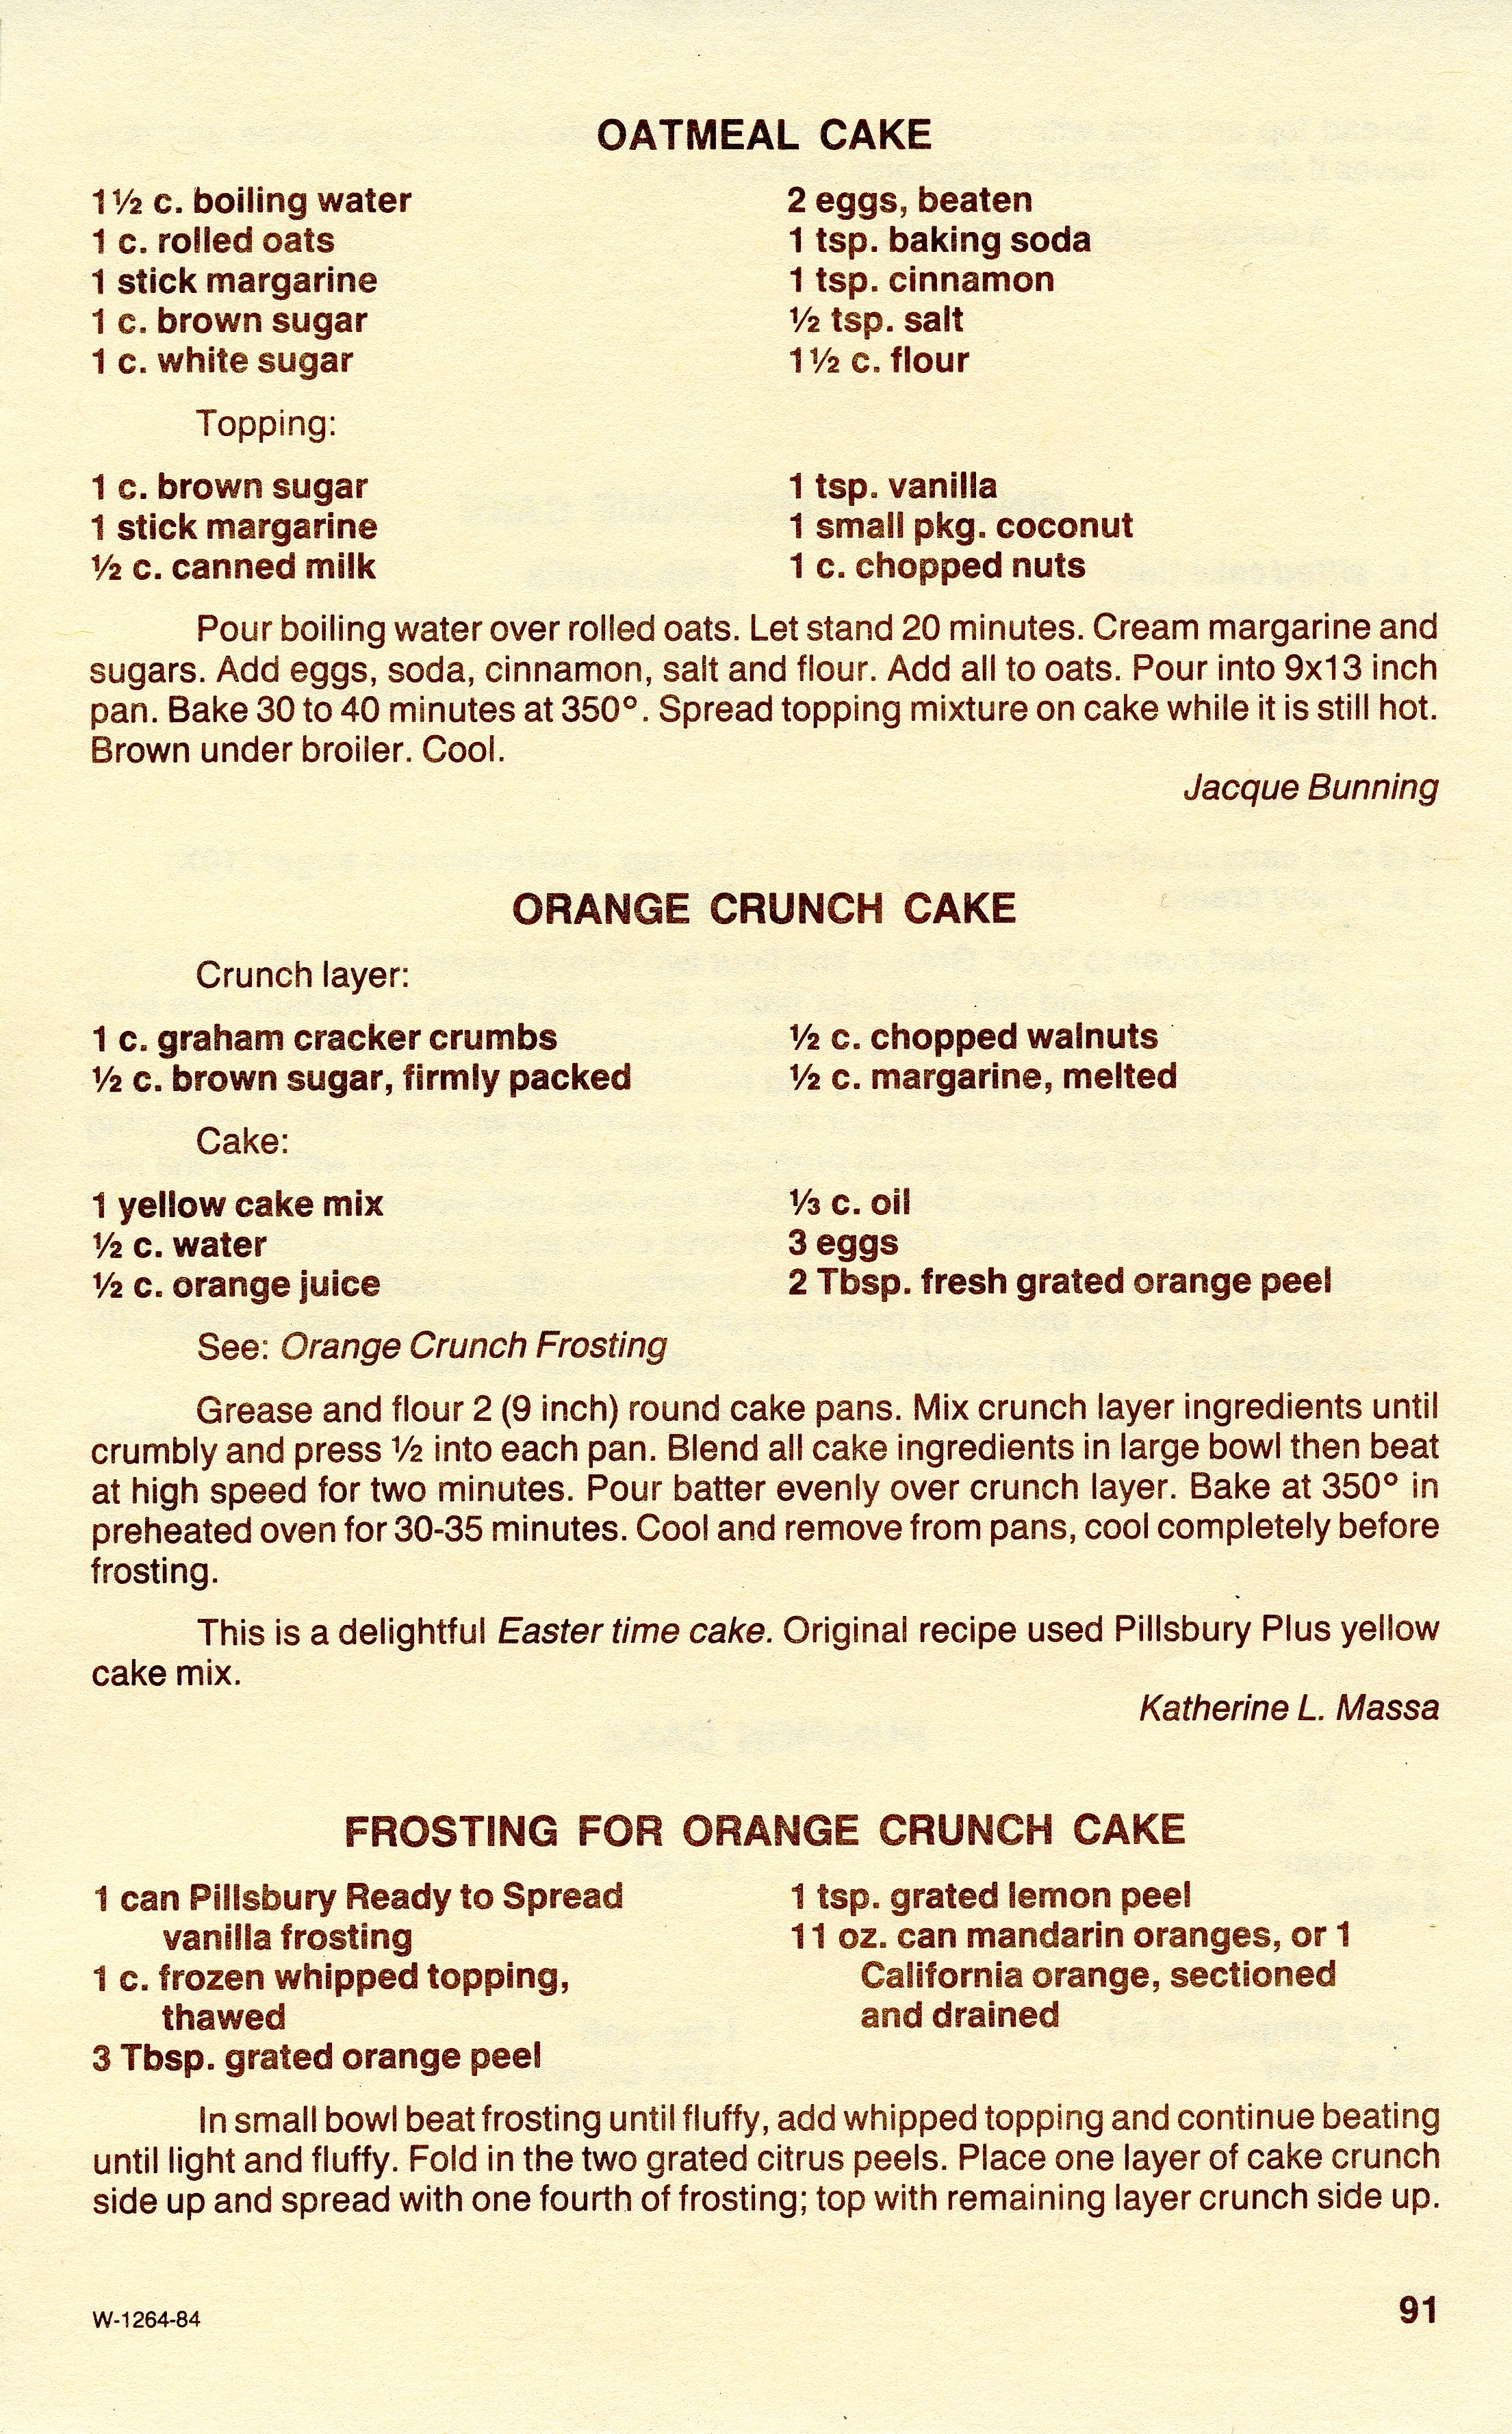 OATMEAL CAKE
1½ c. boiling water
1 c. rolled oats
1 stick margarine
1 c. brown sugar
1 c. white sugar
2 eggs, beaten
1 tsp. baking soda
1 tsp. cinnamon
½ tsp. salt
1½ c. flour
Topping:
1 c. brown sugar
1 stick margarine
½ c. canned milk
1 tsp. vanilla
1 small pkg. coconut
1 c. chopped nuts
Pour boiling water over rolled oats. Let stand 20 minutes. Cream margarine and
sugars. Add eggs, soda, cinnamon, salt and flour. Add all to oats. Pour into 9x13 inch
pan. Bake 30 to 40 minutes at 350°. Spread topping mixture on cake while it is still hot.
Brown under broiler. Cool.
Jacque Bunning
ORANGE CRUNCH CAKE
Crunch layer:
1 c. graham cracker crumbs
½ c. brown sugar, firmly packed
½ c. chopped walnuts
½ c. margarine, melted
Cake:
1 yellow cake mix
½ c. water
½ c. orange juice
⅓ c. oil
3 eggs
2 Tbsp. fresh grated orange peel
See: Orange Crunch Frosting
Grease and flour 2 (9 inch) round cake pans. Mix crunch layer ingredients until
crumbly and press ½ into each pan. Blend all cake ingredients in large bowl then beat
at high speed for two minutes. Pour batter evenly over crunch layer. Bake at 350° in
preheated oven for 30-35 minutes. Cool and remove from pans, cool completely before
frosting.
This is a delightful Easter time cake. Original recipe used Pillsbury Plus yellow
cake mix.
Katherine L. Massa
FROSTING FOR ORANGE CRUNCH CAKE
1 can Pillsbury Ready to Spread
vanilla frosting
1 c. frozen whipped topping,
thawed
3 Tbsp. grated orange peel
1 tsp. grated lemon peel
11 oz. can mandarin oranges, or 1
California orange, sectioned
and drained
In small bowl beat frosting until fluffy, add whipped topping and continue beating
until light and fluffy. Fold in the two grated citrus peels. Place one layer of cake crunch
side up and spread with one fourth of frosting; top with remaining layer crunch side up.
W-1264-84
91